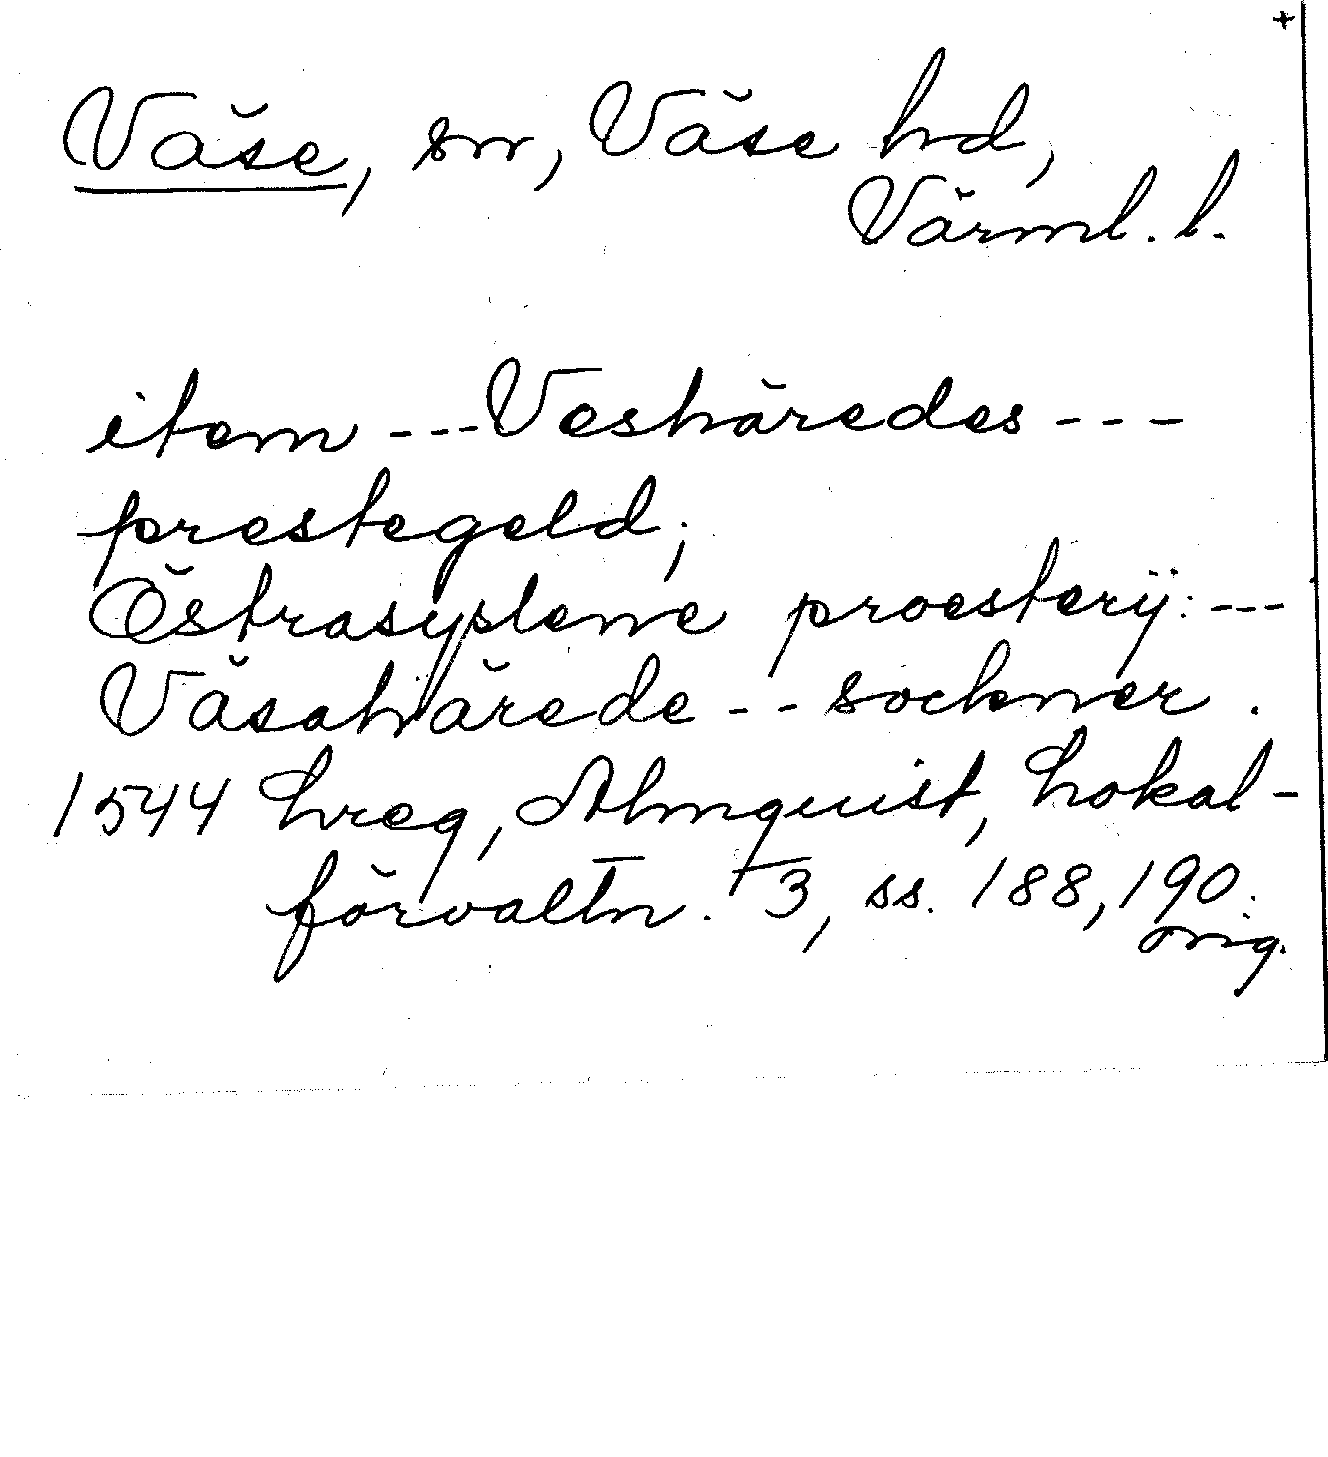 +
Väse, sn, Väse hd,
Värml. l.
item --- Veshäredes ---
prestegeld;
Östrasyslene proesterij: ---
Väsahärede -- sockner.
1544 Lreg, Almquist, Lokal-
förvaltn. 3, ss. 188, 190.
orig.